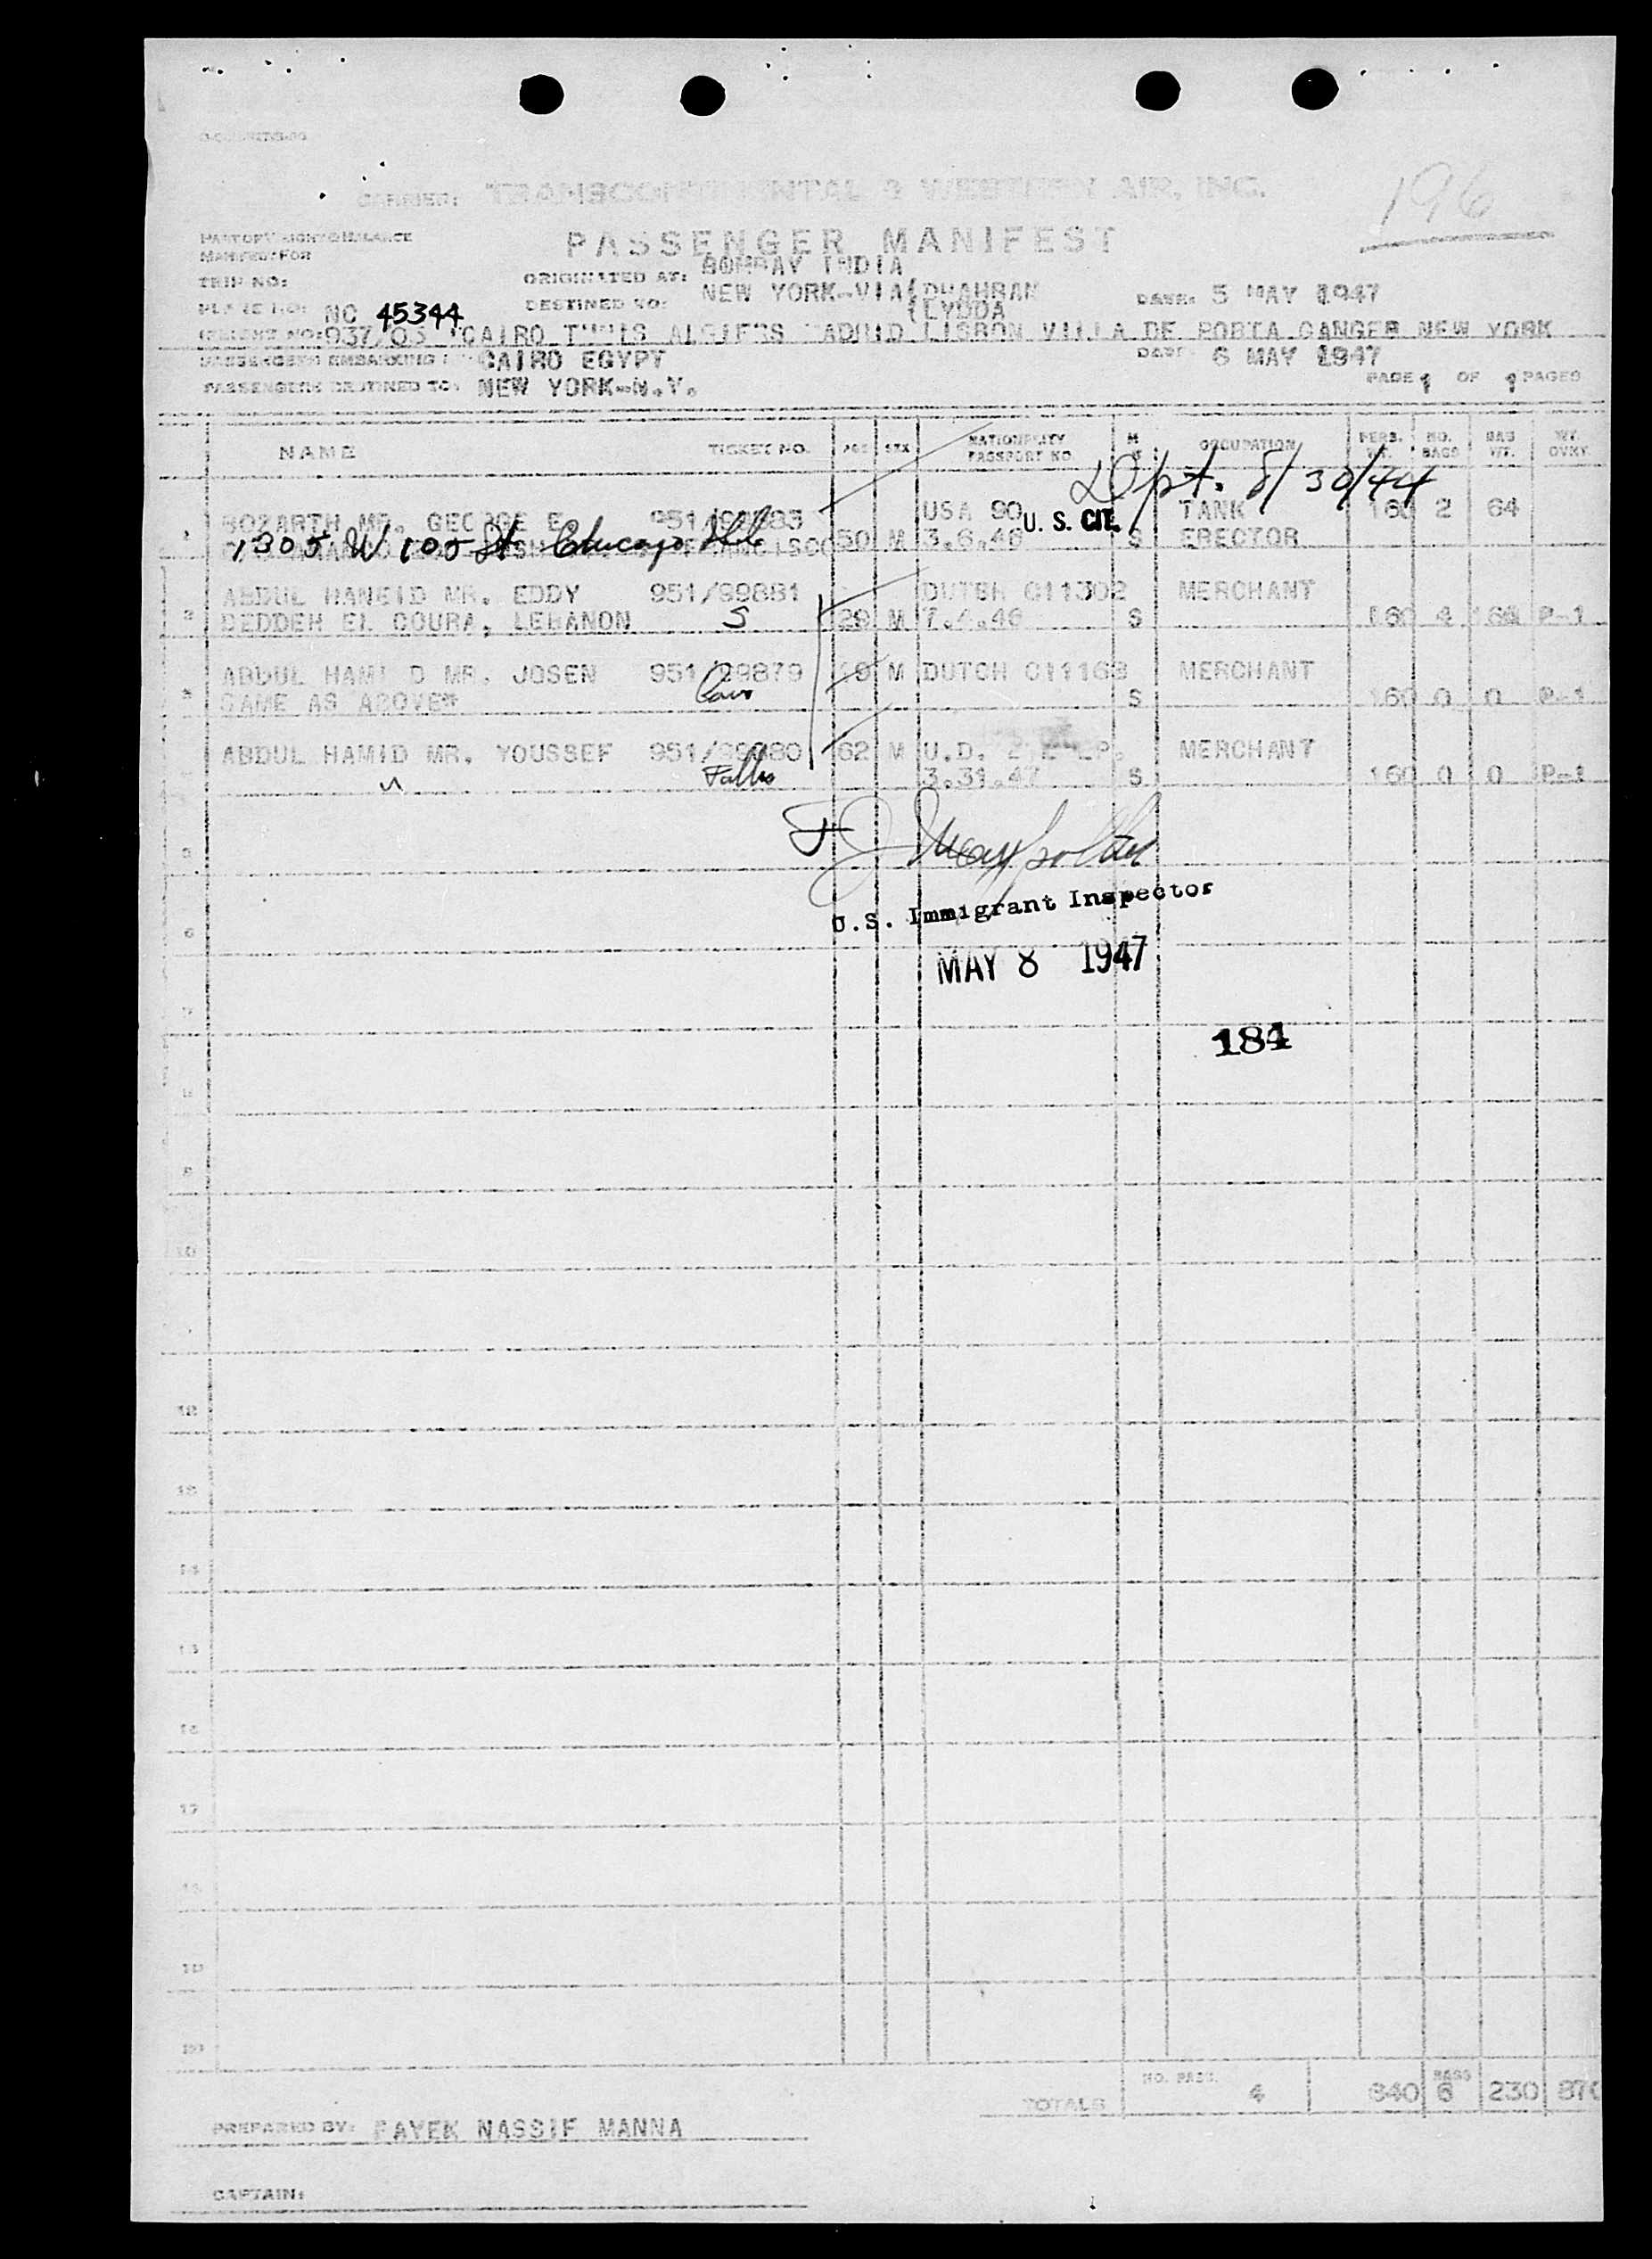 196
CARRIER: TRANSCONTINENTAL & WESTERN AIR, INC.
PASSENGER MANIFEST
PART OF WEIGHT & BALANCE
MANIFEST FOR
TRIP NO:
ORIGINATED AT: BOMBAY INDIA
DESTINED TO: NEW YORK-VIA (DHAHRAN
(LYDDA
DATE: 5 MAY 1947
PLANE NO: NC 45344
937/05 CAIRO TUNIS ALGIERS MADRID LISBON VILLA DE PORTA GANGER NEW YORK
PASSENGERS EMBARKING CAIRO EGYPT
DATE: 6 MAY 1947
PASSENGERS DESTINED TO: NEW YORK-N.Y.
PAGE 1 OF 1 PAGES
NAME TICKET NO. AGE SEX NATIONALITY PASSPORT NO. M S OCCUPATION PERS. WT. NO. BAGS BAG WT. WT. OVRY
Dpt. 8/30/44
1 BOZARTH MR. GEORGE E. 951/99883 USA 90 U. S. CIT. TANK 160 2 64
1305 W 105 St Chicago Ill. 50 M 3.6.46 S ERECTOR
ABDUL HAMEID MR. EDDY 951/99881 DUTCH C11302 MERCHANT
2 DEDDEH EL COURA, LEBANON S 29 M 7.4.46 S 160 4 166 P-1
ABDUL HAMID MR. JOSEN 951/99879 9 M DUTCH C11163 MERCHANT
3 SAME AS ABOVE* S 160 0 0 P-1
ABDUL HAMID MR. YOUSSEF 951/99880 62 M U.D. MERCHANT
3.31.47 S 160 0 0 P-1
5
U.S. Immigrant Inspector
6
MAY 8 1947
7
184
8
9
10
12
13
14
15
16
17
18
19
20
TOTALS NO. PASS. 4 640 BAGS 6 230 870
PREPARED BY: FAYEK NASSIF MANNA
CAPTAIN: